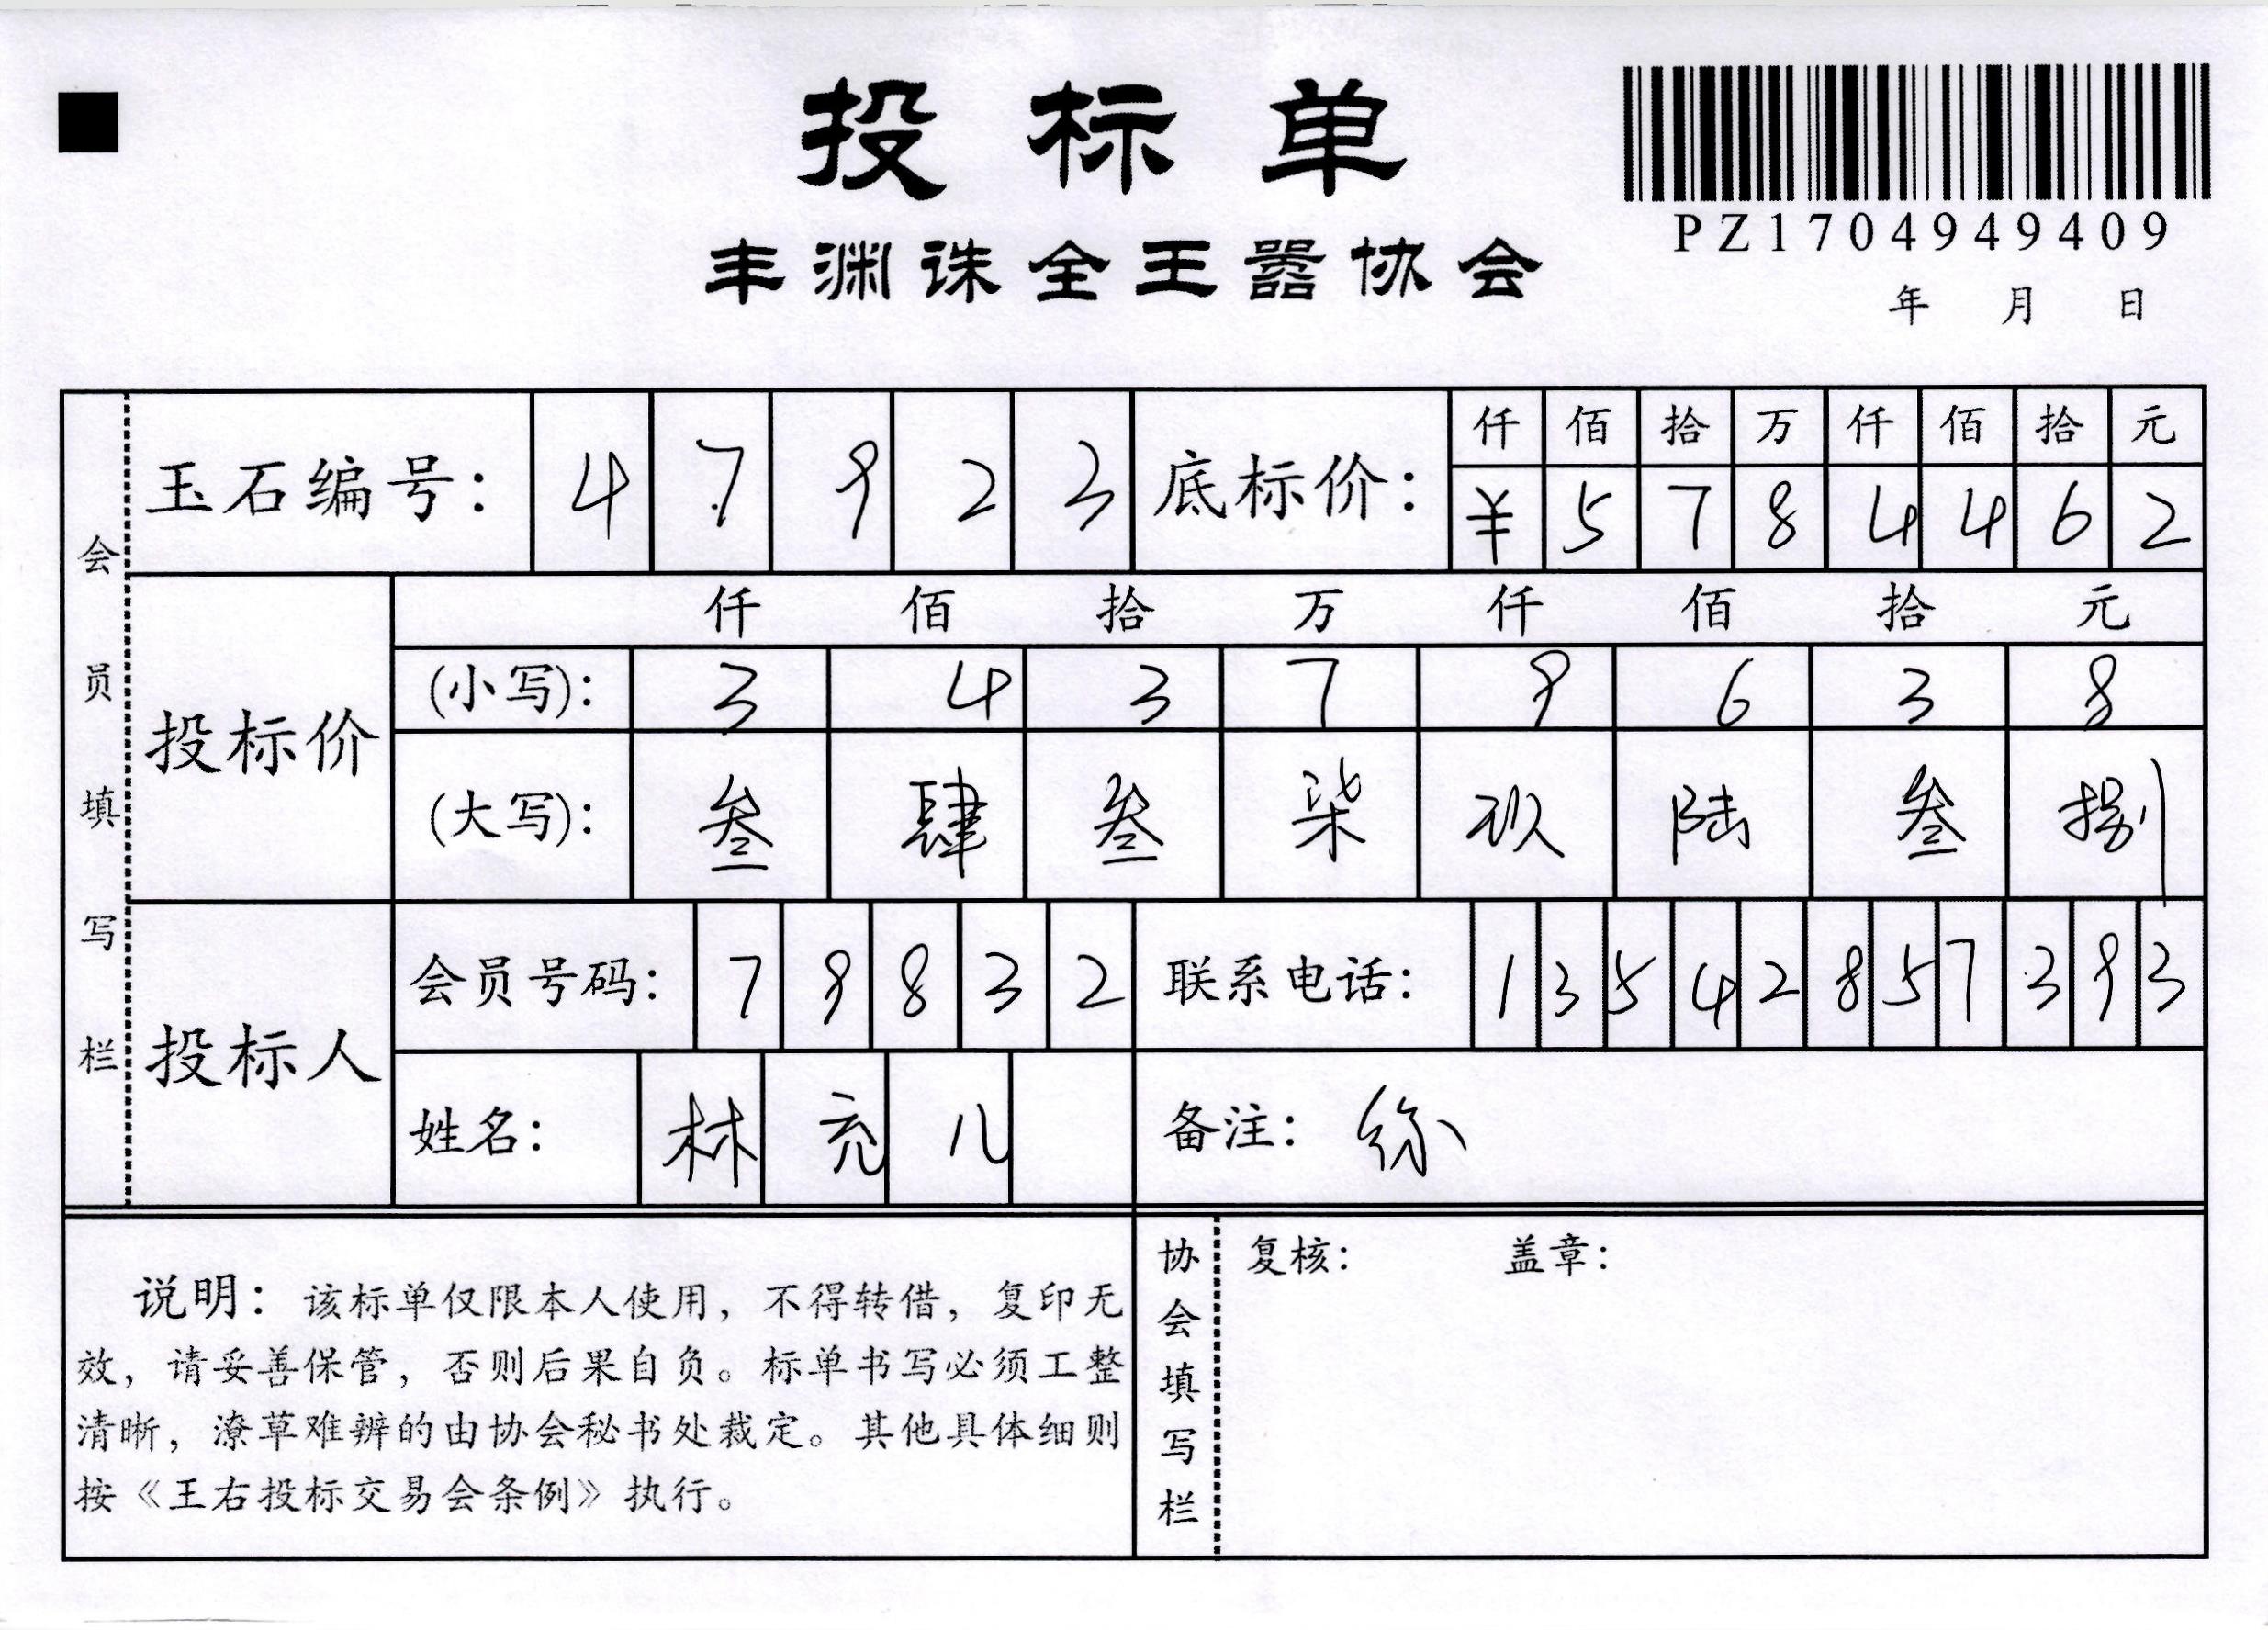 投标单
丰渊诛全王嚣协会
PZ1704949409
年 月 日
会员填写栏
玉石编号: 4 7 9 2 3
底标价: 仟 佰 拾 万 仟 佰 拾 元
¥ 5 7 8 4 4 6 2
投标价
仟 佰 拾 万 仟 佰 拾 元
(小写): 3 4 3 7 9 6 3 8
(大写): 叁 肆 叁 柒 玖 陆 叁 捌
投标人
会员号码: 7 9 8 3 2
联系电话: 1 3 5 4 2 8 5 7 3 9 3
姓名: 林 充 儿
备注:
说明: 该标单仅限本人使用, 不得转借, 复印无
效, 请妥善保管, 否则后果自负。标单书写必须工整
清晰, 潦草难辨的由协会秘书处裁定。其他具体细则
按《王右投标交易会条例》执行。
协会填写栏
复核: 盖章: